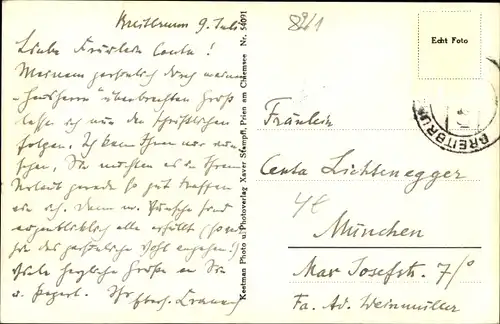 Breitbrunn 9. Juli
Liebe Fräulein Centa!
Meinem persönlich durch meinen
"Hausherrn" überbrachten Gruß
lasse ich nun den schriftlichen
folgen. Ich kann Ihnen nur wün-
schen, Sie möchten es in Ihrem
Urlaub gerade so gut treffen
wie ich. Denn m. Wünsche sind
augenblicklich alle erfüllt (so weit
sie das persönliche Wohl angehen!)
Viele herzliche Grüße an Sie
u.
8961
Echt Foto
BREITBRUNN
Keetman Photo u. Photoverlag Xaver Stampfl, Prien am Chiemsee Nr. 54091
Fräulein
Centa Lichtenegger
München
Max Josefstr. 7/0
Fa. Ad. Weinmüller